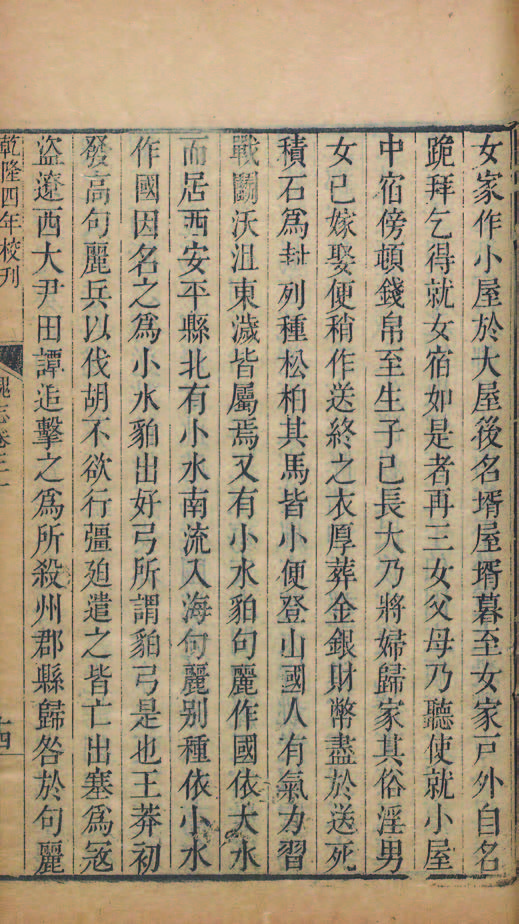 女家作小屋於大屋後名壻屋壻暮至女家戸外自名
跪拜乞得就女宿如是者再三女父母乃聽使就小屋
中宿傍頓錢帛至生子已長大乃將婦歸家其俗淫男
女已嫁娶便稍作送終之衣厚葬金銀財幣盡於送死
積石爲封列種松柏其馬皆小便登山國人有氣力習
戰鬭沃沮東濊皆屬焉又有小水貊句麗作國依大水
而居西安平縣北有小水南流入海句麗别種依小水
作國因名之爲小水貊出好弓所謂貊弓是也王莽初
發高句麗兵以伐胡不欲行彊廹遣之皆亡出塞爲寇
盜遼西大尹田譚追擊之爲所殺州郡縣歸咎於句麗
乾隆四年校刋
魏志卷三十
十四